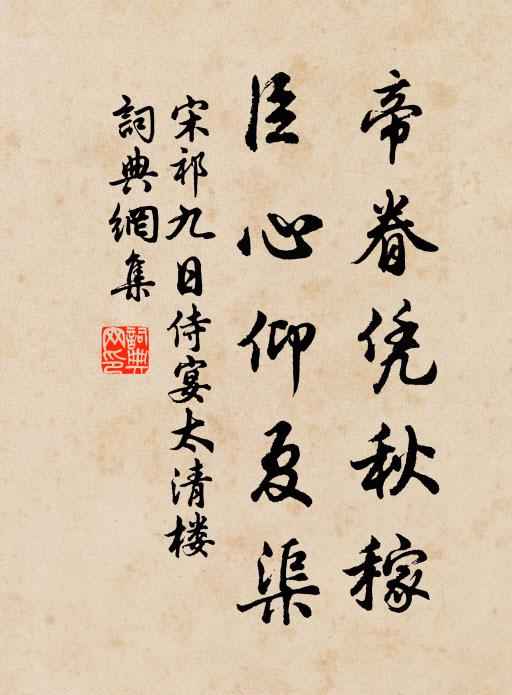 帝眷凭秋稼
臣心仰夏渠
宋祁九日侍宴太清楼
詞典網集
詞典網印